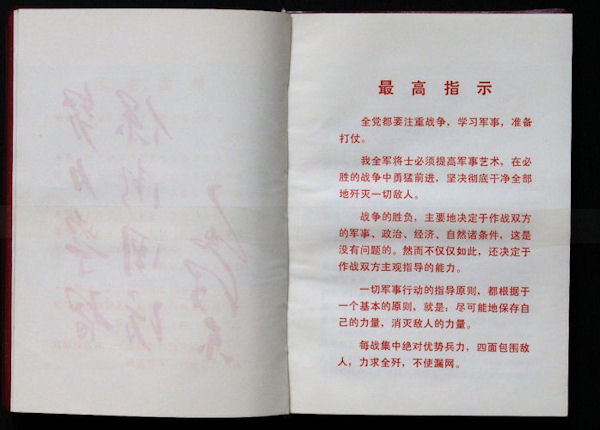 最高指示
全党都要注重战争，学习军事，准备
打仗。
我全军将士必须提高军事艺术，在必
胜的战争中勇猛前进，坚决彻底干净全部
地歼灭一切敌人。
战争的胜负，主要地决定于作战双方
的军事、政治、经济、自然诸条件，这是
没有问题的。然而不仅仅如此，还决定于
作战双方主观指导的能力。
一切军事行动的指导原则，都根据于
一个基本的原则，就是：尽可能地保存自
己的力量，消灭敌人的力量。
每战集中绝对优势兵力，四面包围敌
人，力求全歼，不使漏网。